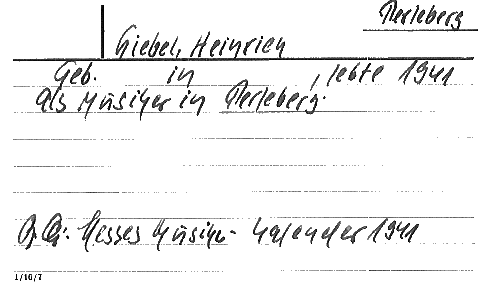 Perleberg
Giebel, Heinrich
Geb. in , lebte 1941
als Musiker in Perleberg.
Hesses Musiker-Kalender 1941
1/10/7